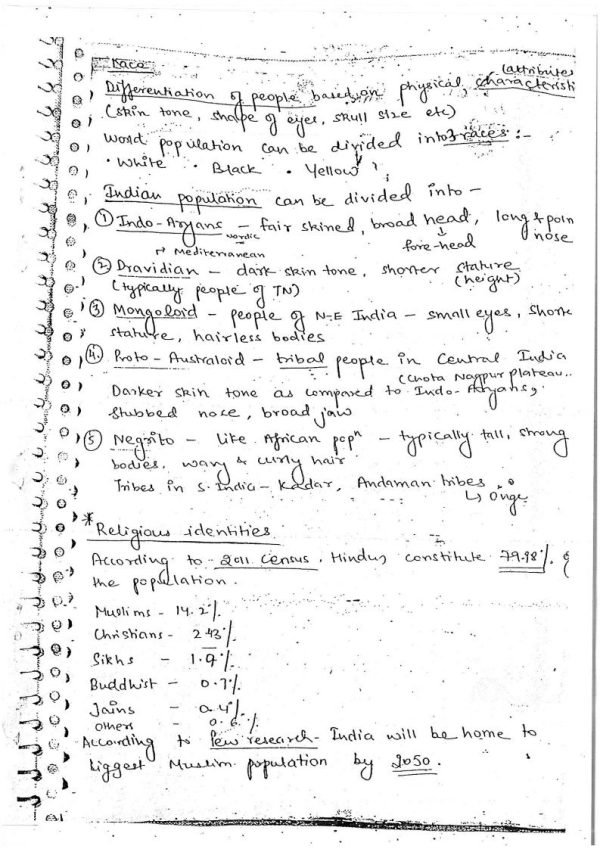 Race
Differentiation of people based on physical characteristi
(attributes
(skin tone, shape of eyes, skull size etc)
World population can be divided into 3 races :-
• White • Black • Yellow
Indian population can be divided into -
① Indo-Aryans - fair skined, broad head, long & poin
nordic ↓ nose
fore-head
↱ Mediterranean
② Dravidian - dark skin tone, shorter stature
(typically people of TN) (height)
③ Mongoloid - people of N-E India - small eyes, short
stature, hairless bodies
④ Proto-Australoid - tribal people in Central India
(Chota Nagpur plateau..
Darker skin tone as compared to Indo-Aryans,
stubbed nose, broad jaw
⑤ Negrito - like African popⁿ - typically tall, strong
bodies, wavy & curly hair
Tribes in S. India - Kadar, Andaman tribes
↳ Onge
* Religious identities
According to 2011 Census, Hindus constitute 79.98%. of
the population.
Muslims - 14.2%.
Christians - 2.3%.
Sikhs - 1.9%.
Buddhist - 0.7%.
Jains - 0.4%.
Others - 0.6%.
According to Pew research - India will be home to
biggest Muslim population by 2050.